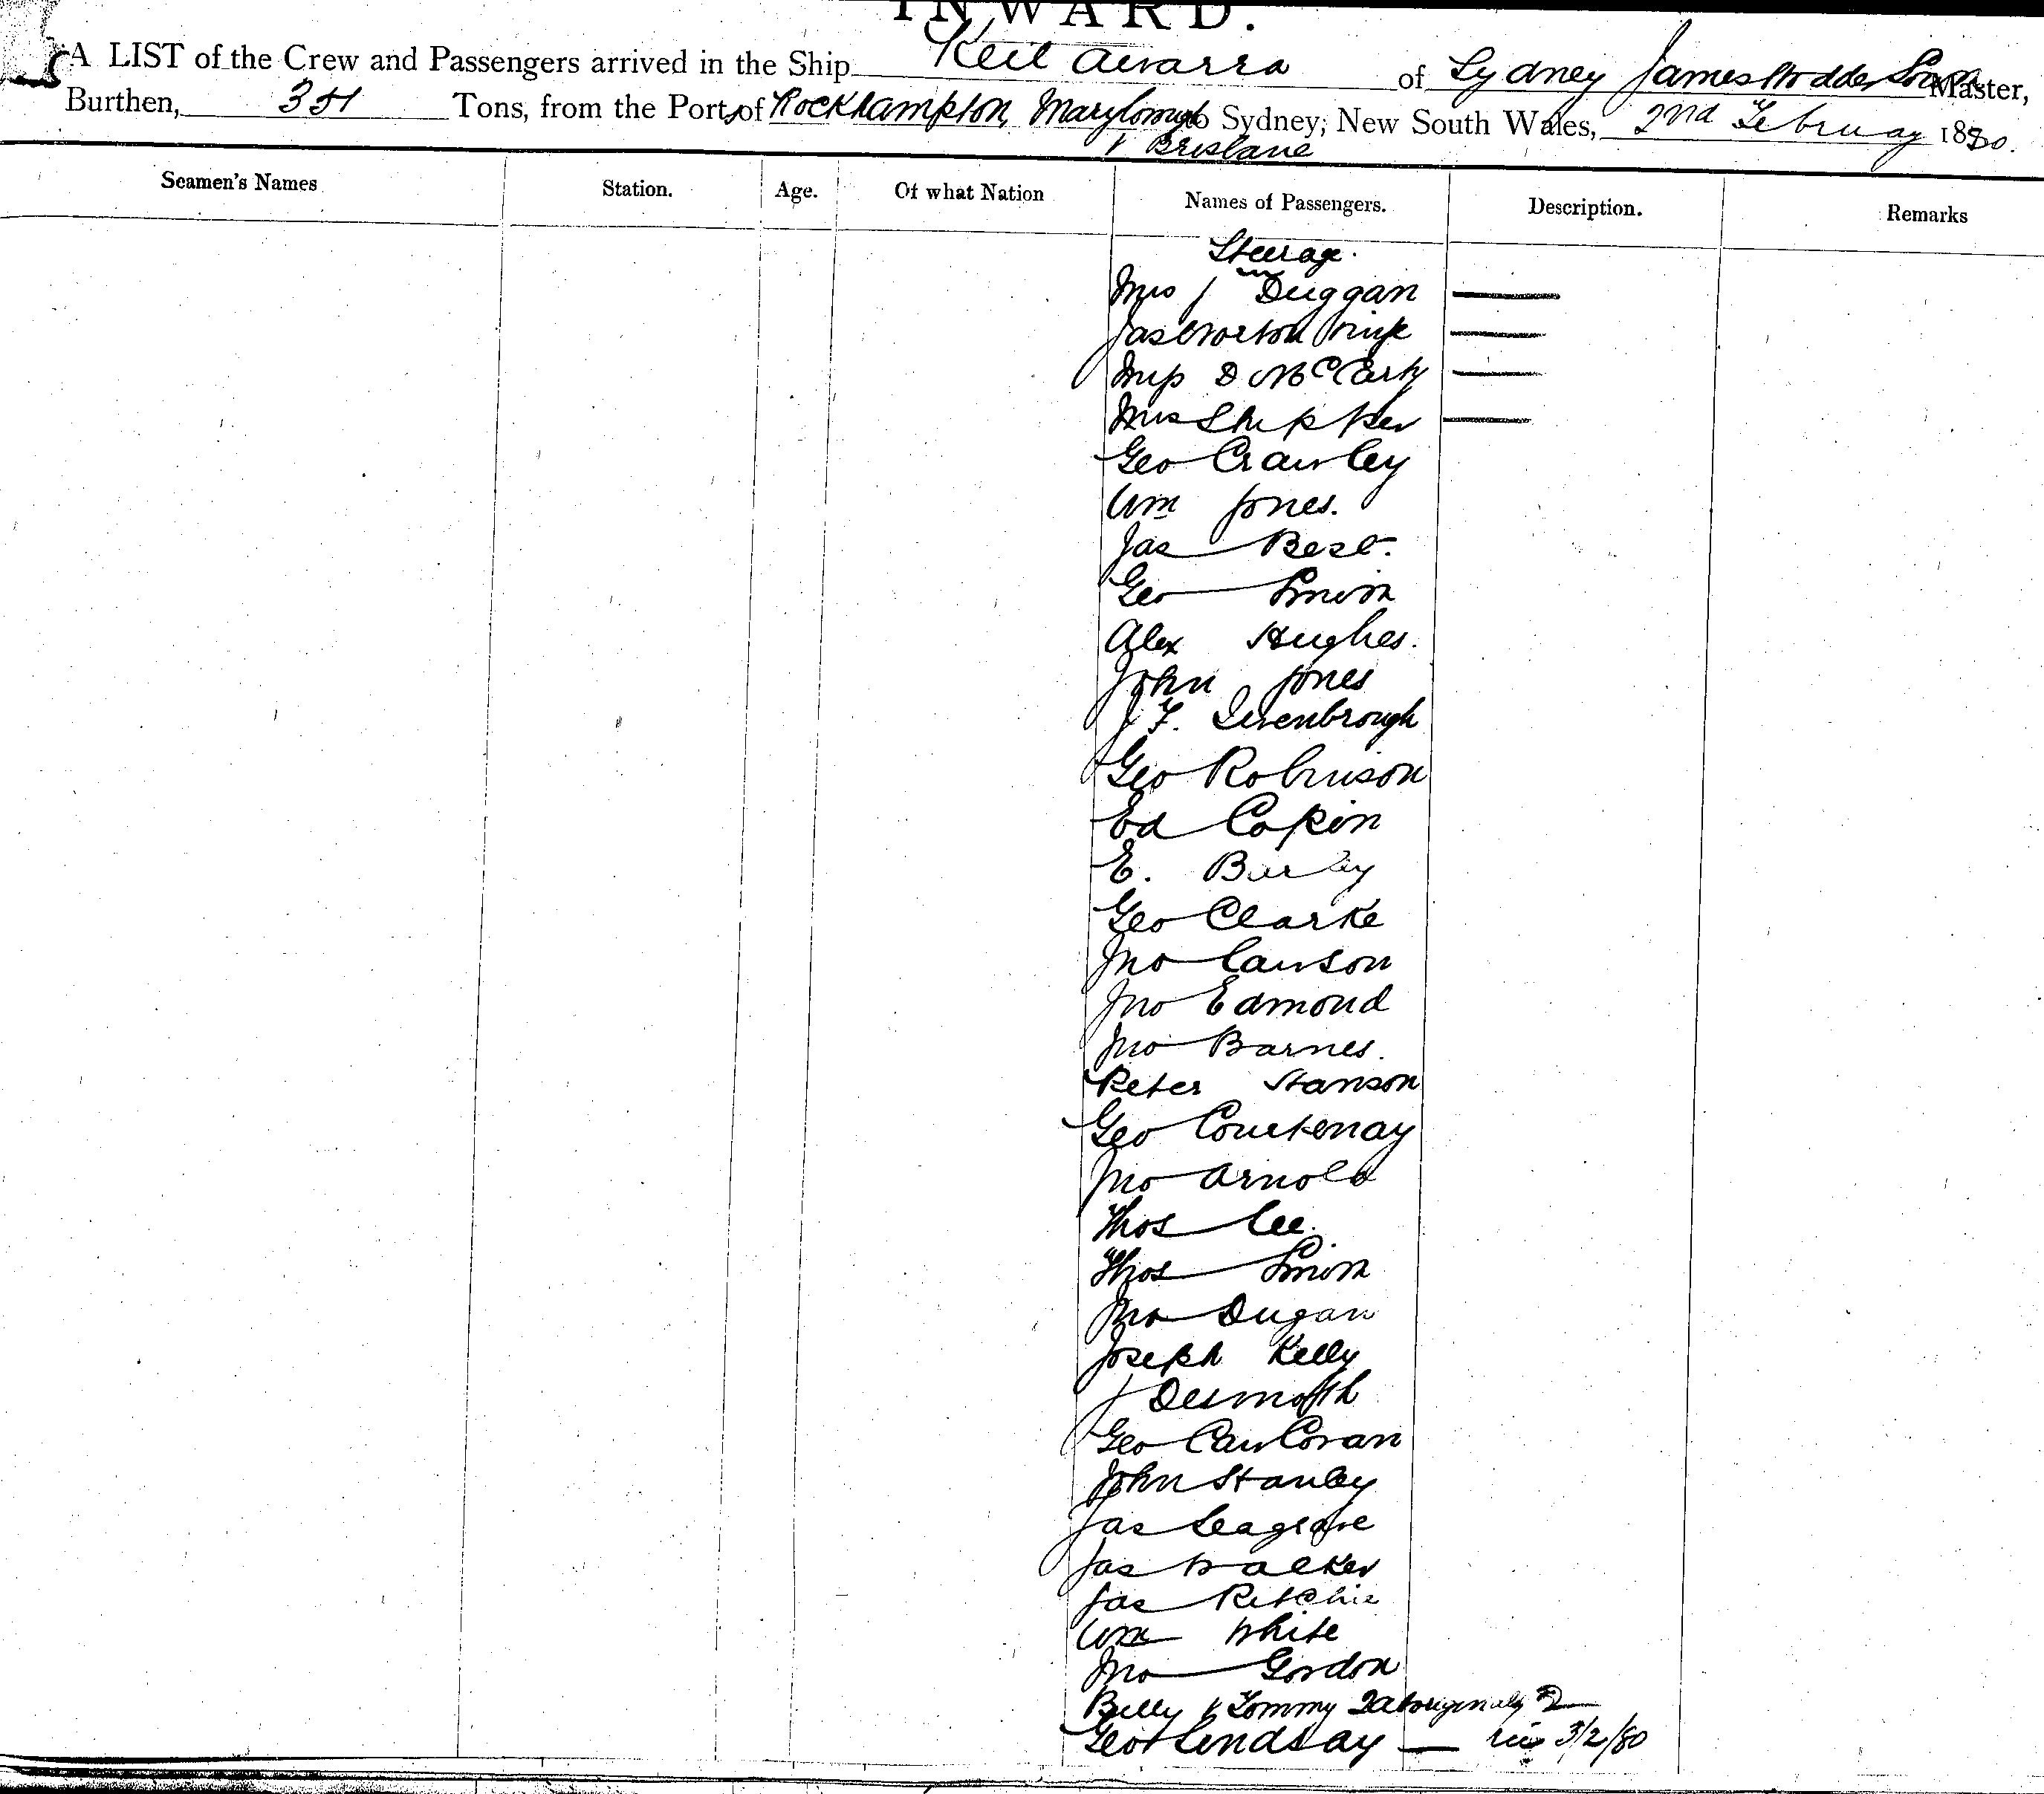 INWARD.
A LIST of the Crew and Passengers arrived in the Ship Keilawarra of Sydney James Master,
Burthen, 351 Tons, from the Ports of Rockhampton, Maryboro to Sydney, New South Wales, 2nd February 1880.
& Brisbane
Seamen's Names Station. Age. Of what Nation Names of Passengers. Description. Remarks
Steerage.
Mrs J Duggan
Jas Norton
D McCarty
Mrs
Geo Crawley
Wm Jones.
Jas Best.
Geo Smith
Alex Hughes.
John Jones
J F.
Geo Robinson
Ed Copin
E.
Geo Clarke
Jno Lawson
Jno Edmond
Jno Barnes.
Peter Hanson
Geo Courtenay
Jno Arnold
Thos Lee.
Thos Smith
Jno Dugan
Joseph Kelly
J
Geo
John Stanley
Jas Seagrave
Jas Walker
Jas Ritchie
Wm White
Jno Gordon
Billy & Tommy 2 aboriginals 2
Geo Lindsay 3/2/80